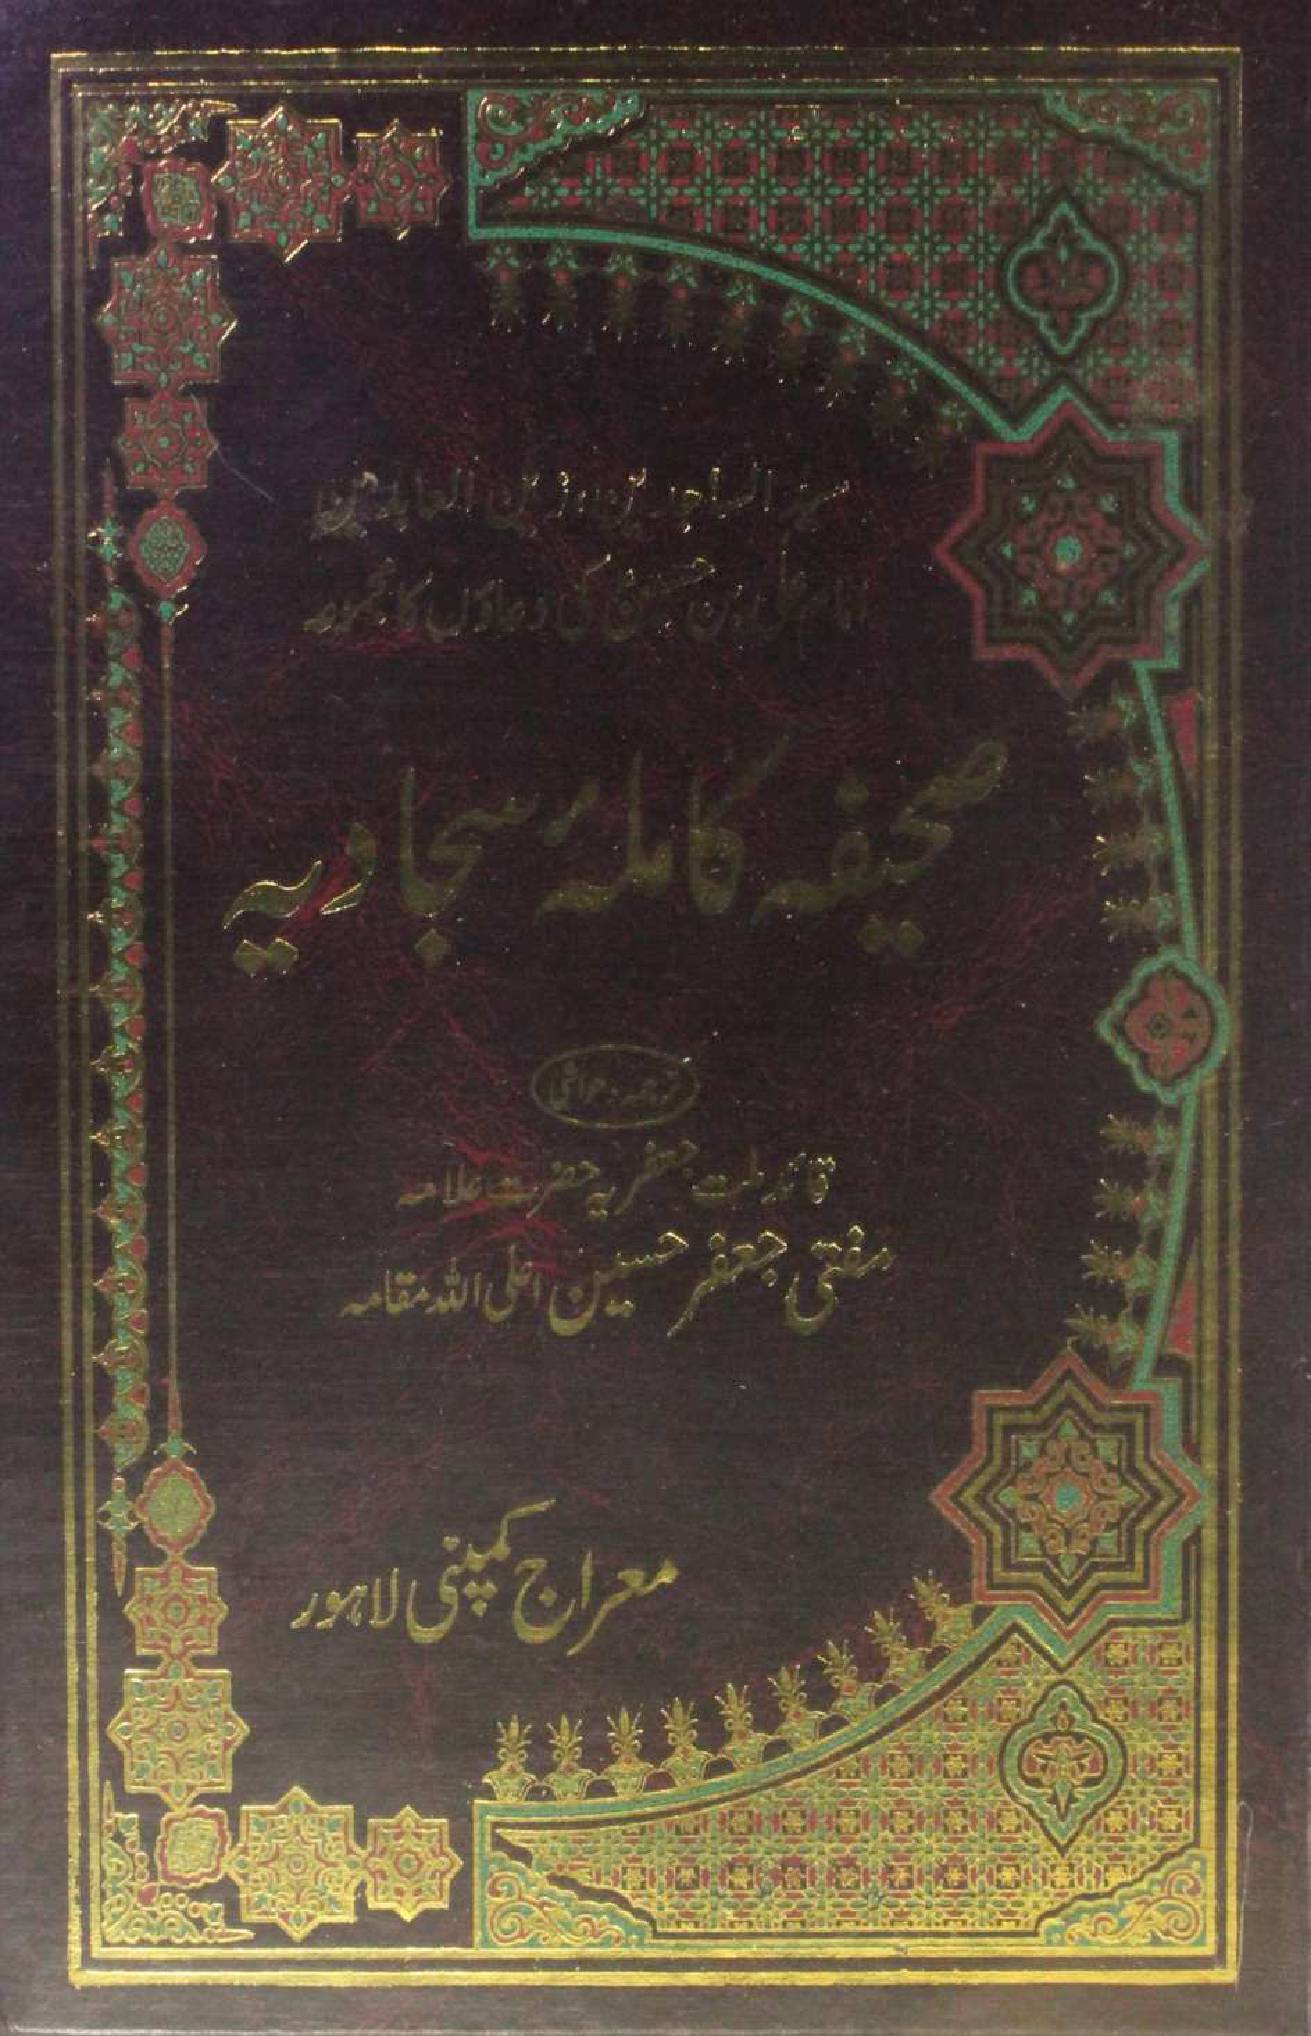 سید الساجدین، زین العابدین
امام علی ابن حسین کی دعاؤں کا مجموعہ
صحیفہ کاملہ سجادیہ
ترجمہ: حواشی
قائد ملت جعفریہ حضرت علامہ
مفتی جعفر حسین اعلی اللہ مقامہ
معراج کمپنی لاہور